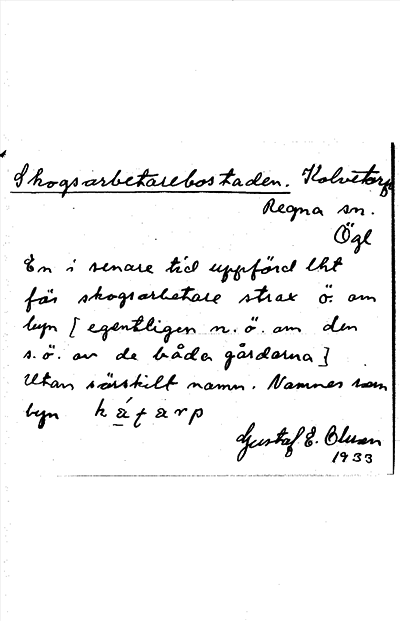 Skogsarbetarebostaden. Kolvetorp
Regna sn.
Ögl
En i senare tid uppförd lht
för skogsarbetare strax ö. om
byn [egentligen n.ö. om den
s.ö. av de båda gårdarna]
Utan särskilt namn. Namnes som
byn
Gustaf E. Olsson
1933